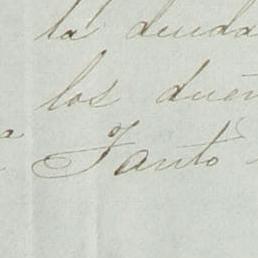 la deuda
los dueñ
a Tanto